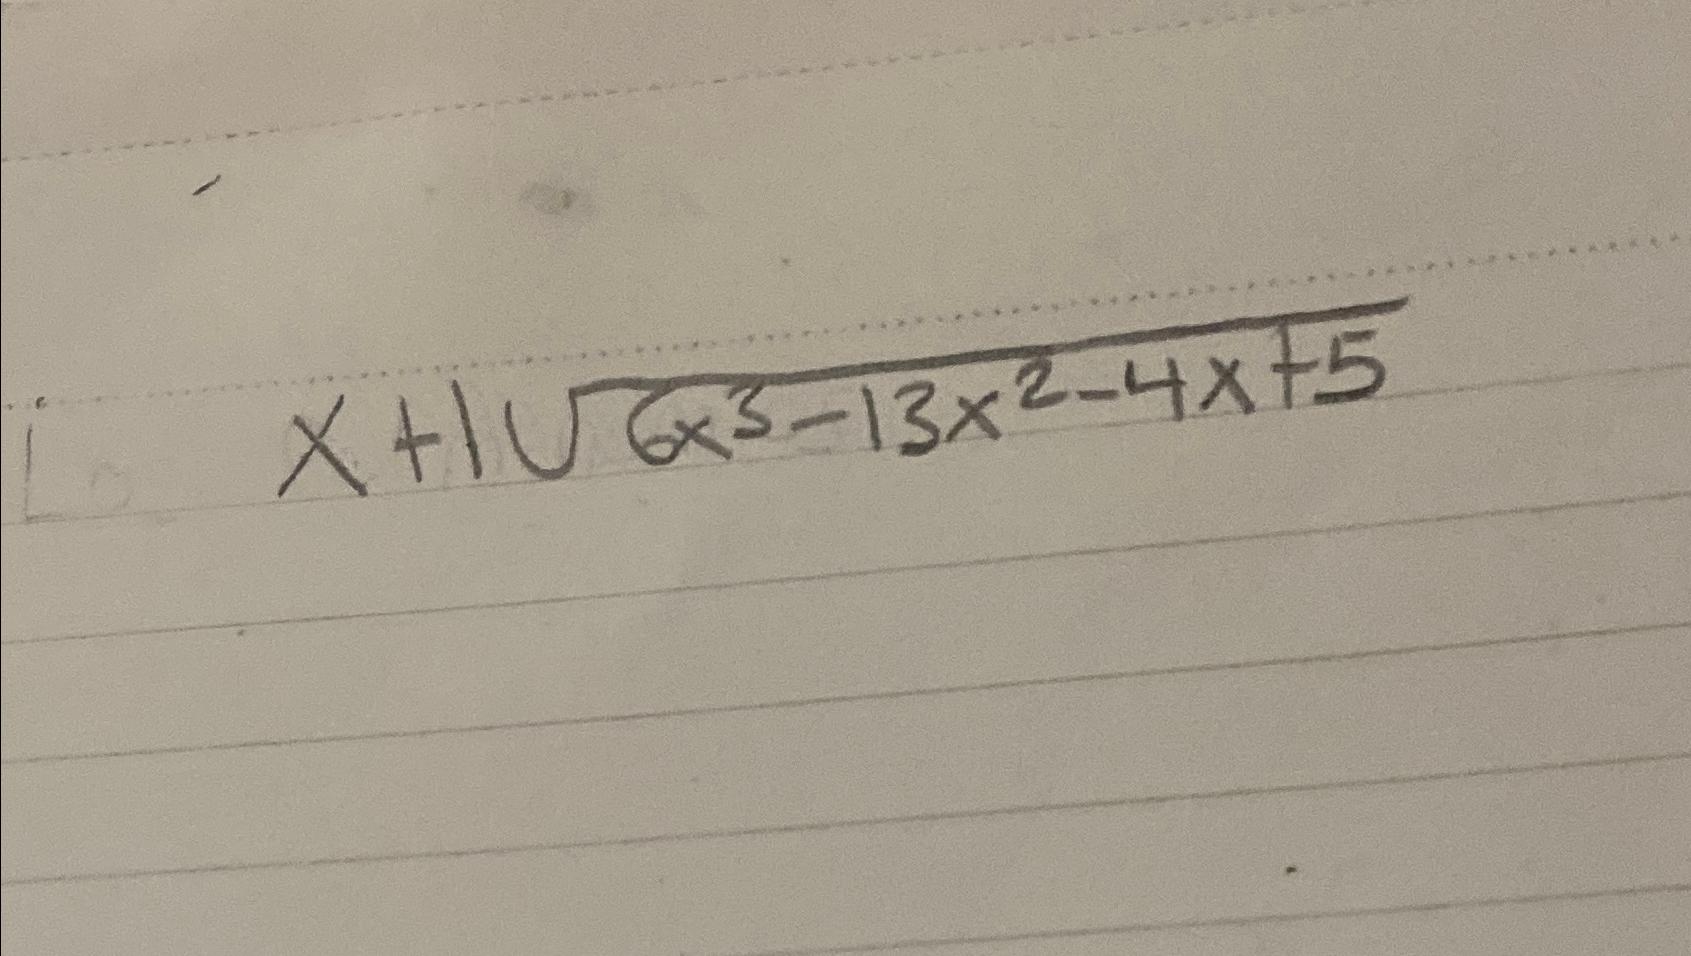 x+1√6x³-13x²-4x+5